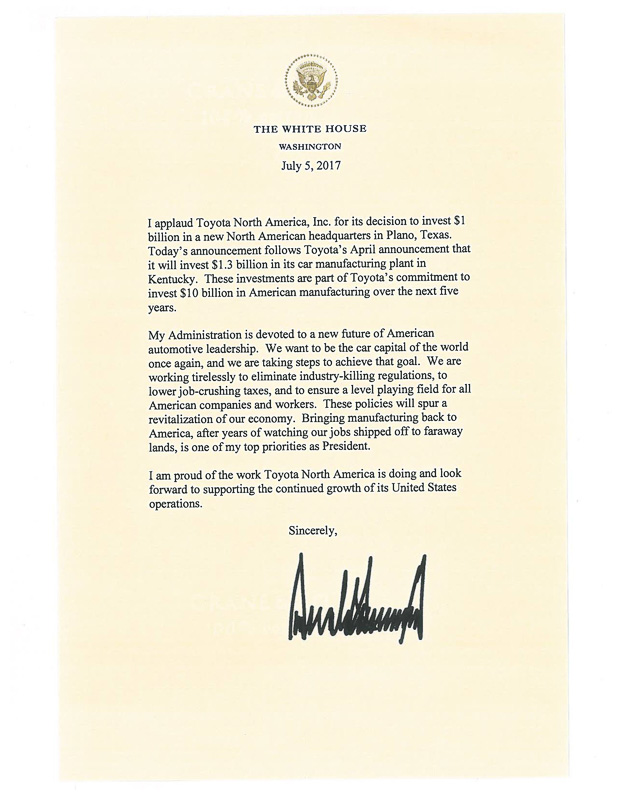 THE WHITE HOUSE
WASHINGTON
July 5, 2017
I applaud Toyota North America, Inc. for its decision to invest $1
billion in a new North American headquarters in Plano, Texas.
Today's announcement follows Toyota's April announcement that
it will invest $1.3 billion in its car manufacturing plant in
Kentucky. These investments are part of Toyota's commitment to
invest $10 billion in American manufacturing over the next five
years.
My Administration is devoted to a new future of American
automotive leadership. We want to be the car capital of the world
once again, and we are taking steps to achieve that goal. We are
working tirelessly to eliminate industry-killing regulations, to
lower job-crushing taxes, and to ensure a level playing field for all
American companies and workers. These policies will spur a
revitalization of our economy. Bringing manufacturing back to
America, after years of watching our jobs shipped off to faraway
lands, is one of my top priorities as President.
I am proud of the work Toyota North America is doing and look
forward to supporting the continued growth of its United States
operations.
Sincerely,